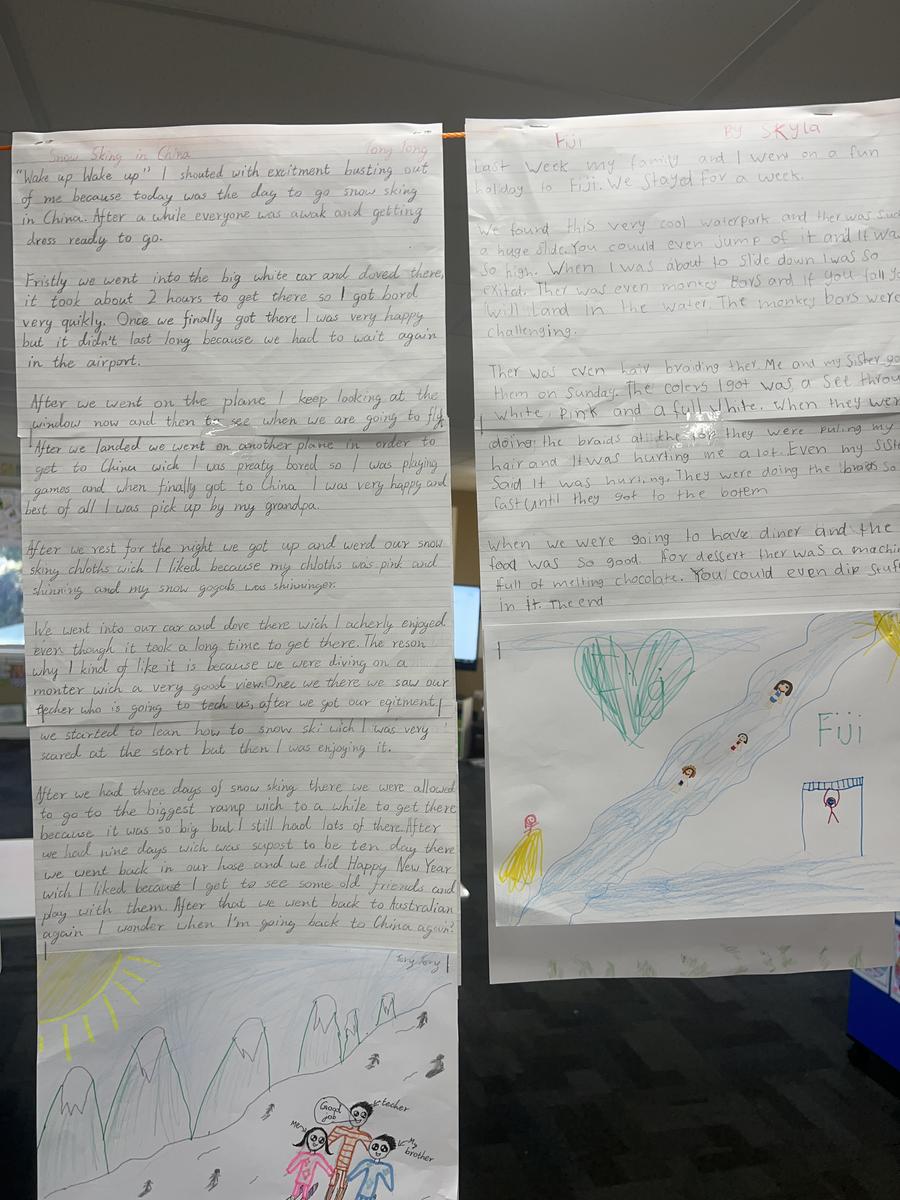 Snow Sking in China Tong Tong
"Wake up Wake up" I shouted with excitment busting out
of me because today was the day to go snow sking
in China. After a while everyone was awak and getting
dress ready to go.
Fristly we went into the big white car and doved there,
it took about 2 hours to get there so I got bord
very quikly. Once we finally got there I was very happy
but it didn't last long because we had to wait again
in the airport.
After we went on the plane I keep looking at the
window now and then to see when we are going to fly.
After we landed we went on another plane in order to
get to China wich I was preaty bored so I was playing
games and when finally got to China I was very happy and
best of all I was pick up by my grandpa.
After we rest for the night we got up and werd our snow
sking chloths wich I liked because my chloths was pink and
shinning and my snow gogals was shinninger.
We went into our car and dove there wich I acherly enjoyed
even though it took a long time to get there. The reson
why I kind of like it is because we were diving on a
monter wich a very good view. Onec we there we saw our
techer who is going to tech us, after we got our eqitment
we started to lean how to snow ski wich I was very
scared at the start but then I was enjoying it.
After we had three days of snow sking there we were allowed
to go to the biggest ramp wich to a while to get there
because it was so big but I still had lots of there. After
we had nine days wich was supost to be ten day there
we went back in our hose and we did Happy New Year
wich I liked because I get to see some old friends and
play with them. After that we went back to Australian
again I wonder when I'm going back to China again?
Tong Tong
Good
job
techer
Me
My
brother
Fiji By Skyla
Last week my family and I went on a fun
holiday to Fiji. We stayed for a week.
We found this very cool waterpark and ther was such
a huge slide. You couuld even jump of it and it was
so high. When I was about to slide down I was so
exited. Ther was even monkey Bars and if you fall yo
will Land in the water. The monkey bars were
challenging.
Ther was even hair braiding ther. Me and my Sister go
them on Sunday. The colers I got was a see throu
white, pink and a full white. When they wer
doing the braids at the top they were puling my
hair and It was hurting me a lot. Even my sist
Said It was hurting. They were doing the braids so
fast until they got to the botem
When we were going to have diner and the
food was so good. For dessert ther was a machin
full of melting chocolate. You could even dip stuff
in it. The end
Fiji
Fiji